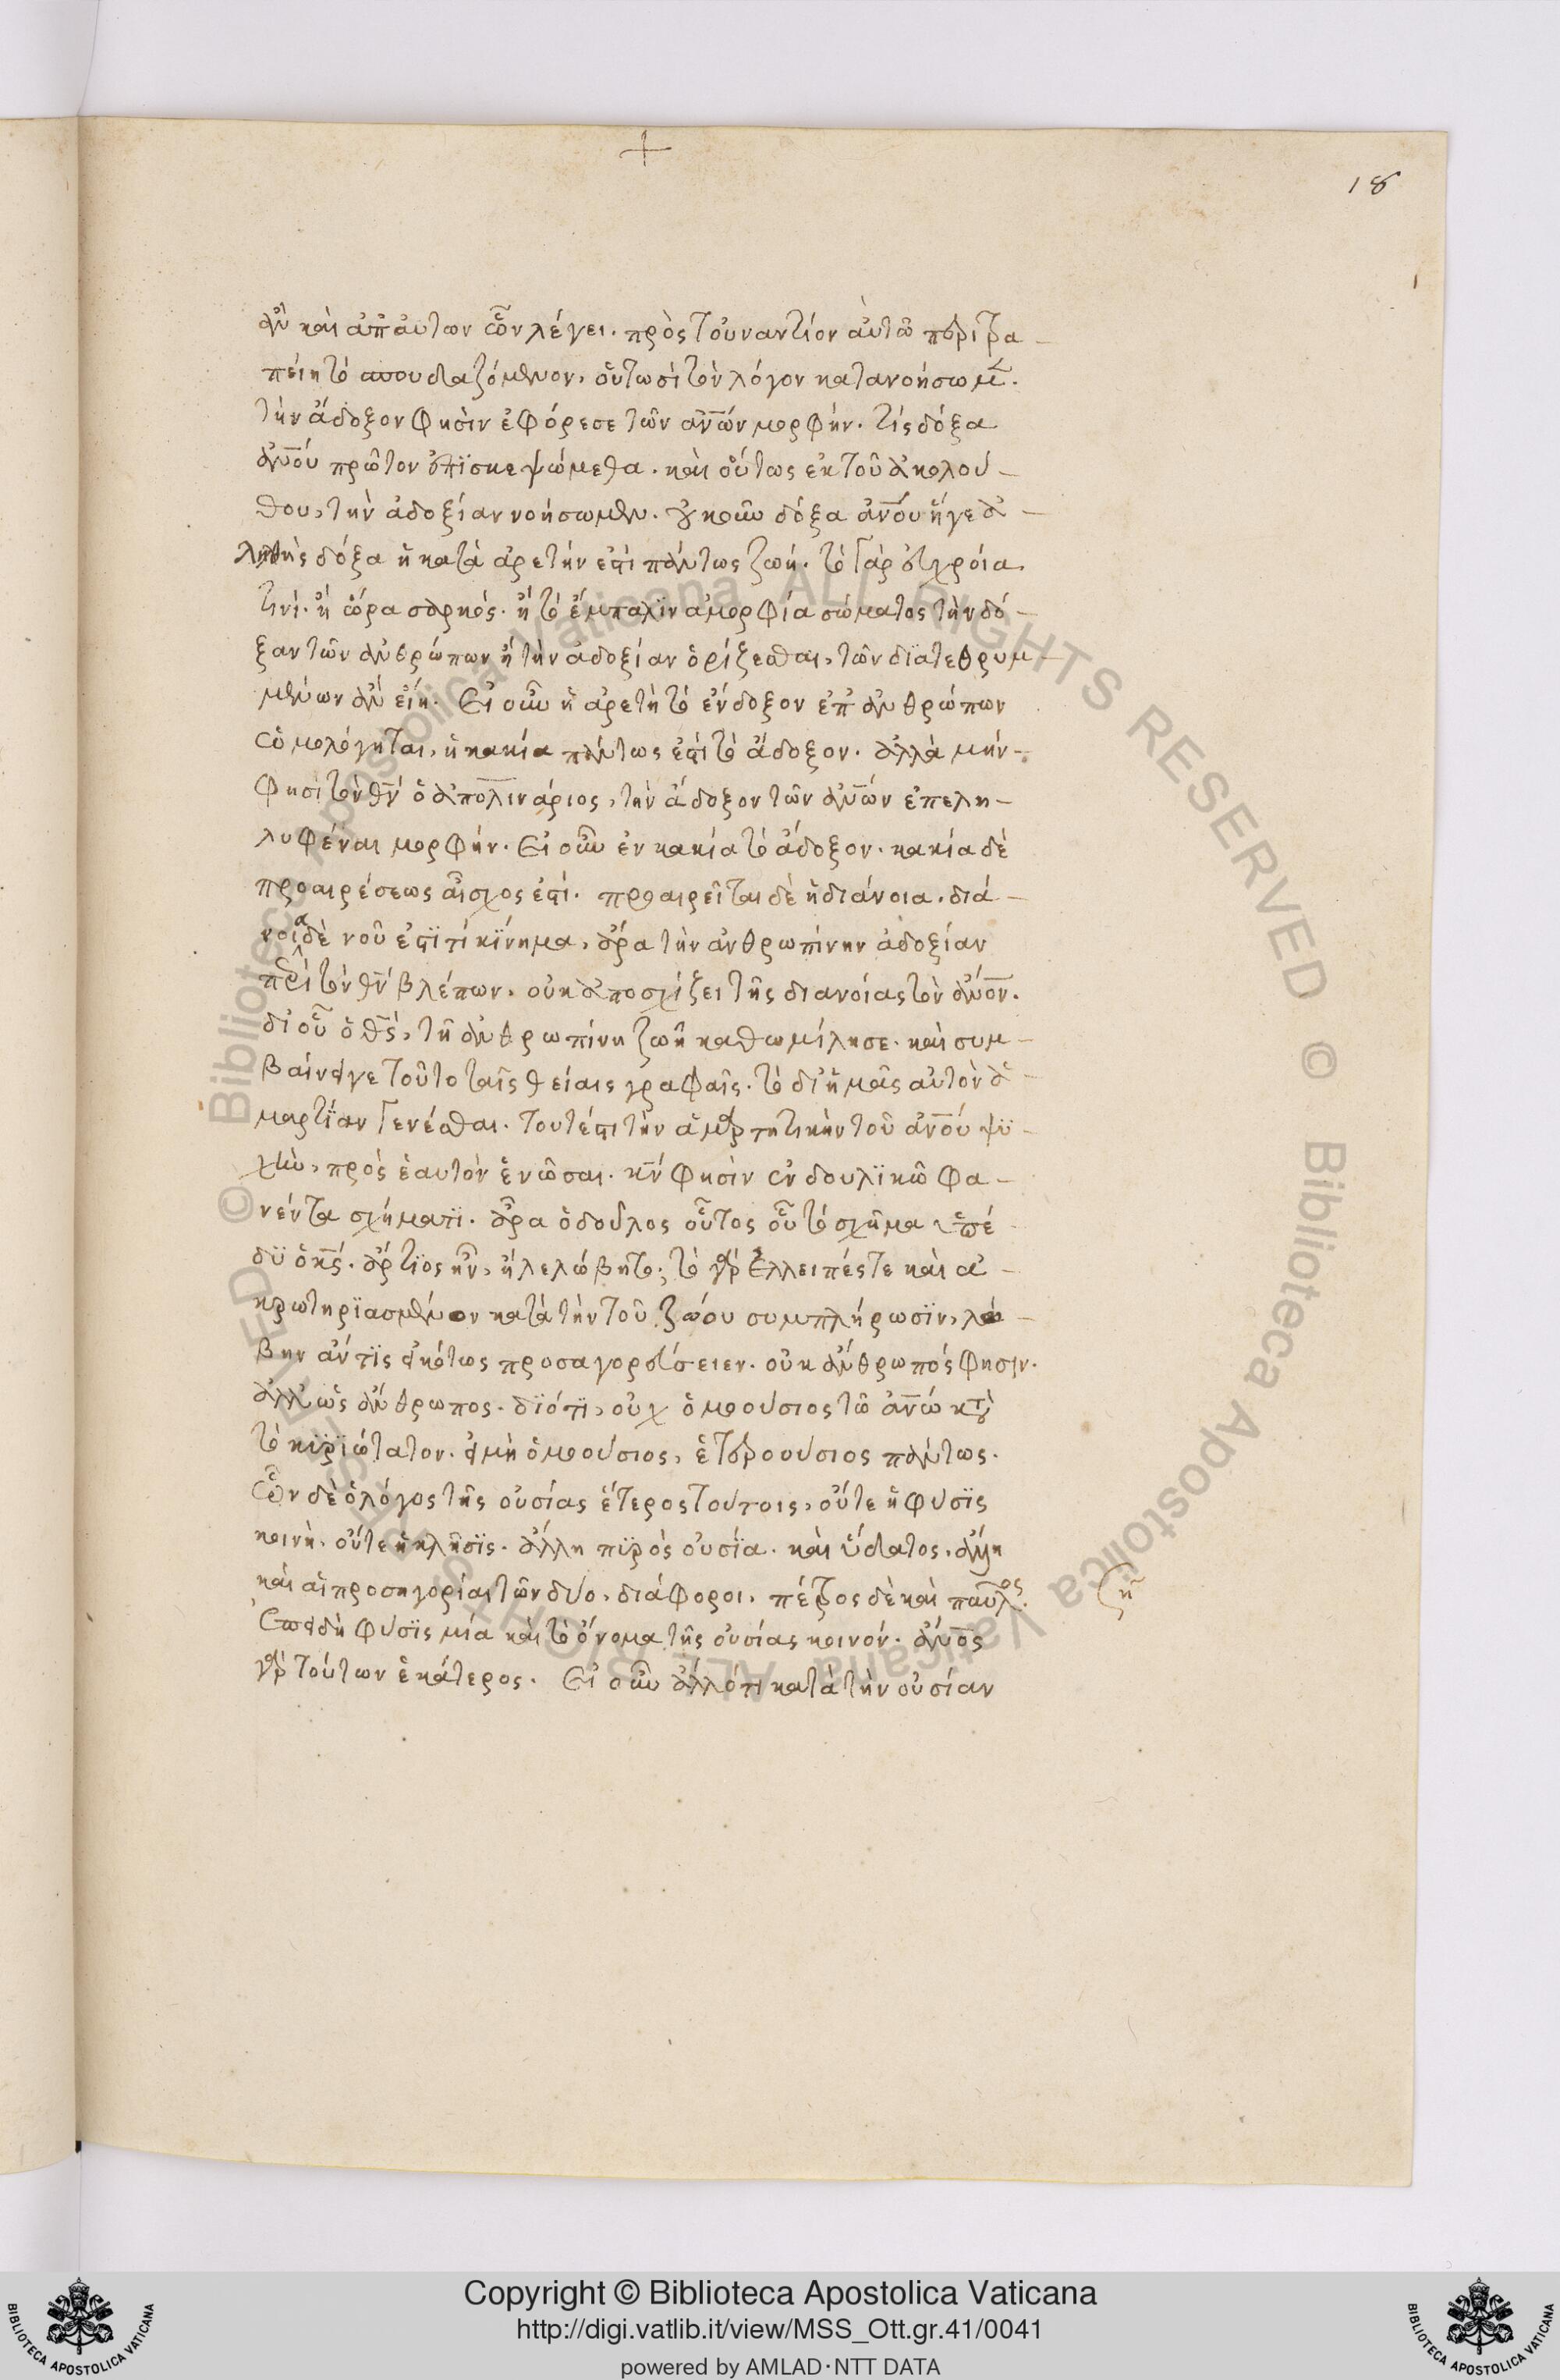 +
18
ἂν καὶ ἀπ' ἀυτων ὧν λέγει. πρὸς τοὐναντίον ἀυτῶ περιτρα-
πείη τὸ σπουδαζόμενον, οὑτωσὶ τὸν λόγον κατανοήσωμεν.
τὴν ἄδοξον φησὶν ἐφόρεσε τῶν ἀνων μορφήν. τίς δόξα
ἀνου πρῶτον ἐπισκεψώμεθα. καὶ οὕτως ἐκ τοῦ ἀκολού-
θου, τὴν ἀδοξίαν νοήσωμεν. οὐκοῦν δόξα ἀνου ἥγε ἀ-
ληθὴς δόξα ἡ κατὰ ἀρετήν ἐστι πάντως ζωή. τὸ γὰρ εὐχροία
τινί. ἢ ὥρα σαρκός. ἢ τὸ ἔμπαλιν ἀμορφία σώματος τὴν δό-
ξαν τῶν ἀνθρώπων ἢ τὴν ἀδοξίαν ὁρίζεσθαι, τῶν διατεθρυμ-
μένων ἂν εἴη. Εἰ οὖν ἡ ἀρετὴ τὸ ἔνδοξον ἐπ' ἀνθρώπων
ὁμολόγηται, ἡ κακία πάντως ἐστὶ τὸ ἄδοξον. ἀλλὰ μὴν-
φησὶ τὸν θν ὁ ἀπολινάριος, τὴν ἄδοξον τῶν ἀνων ἐπειλη-
λυφέναι μορφήν. Εἰ οὖν ἐν κακία τὸ ἄδοξον. κακία δὲ
προαιρέσεως αἶσχος ἐστί. προαιρεῖται δὲ ἡ διάνοια. διά-
νοια δὲ νοῦ ἐστὶ τί κίνημα, ἄρα τὴν ἀνθρωπίνην ἀδοξίαν
περὶ τὸν θν βλέπων, οὐκ ἀποσχίζει τῆς διανοίας τὸν ἀνον.
δι οὗ ὁ θς, τῆ ἀνθρωπίνη ζωῆ καθωμίλησε. καὶ συμ-
βαίνειγε τοῦτο ταῖς θείαις γραφαῖς. τὸ δι ἡμᾶς αὐτὸν ἁ-
μαρτίαν γενέσθαι. τουτέστι τὴν ἁμαρτητικὴν τοῦ ἀνου ψυ-
χὴν, πρὸς ἑαυτὸν ἑνῶσαι. κν φησὶν ἐν δουλικῶ φα-
νέντα σχήματι. ἆρα ὁ δοῦλος οὗτος οὗ τὸ σχῆμα ὑπέ-
δυ ὁ κς. ἄρτιος ἦν, ἢ λελώβητο; τὸ γὰρ ἐλλειπές τε καὶ ἀ-
κρωτηριασμένον κατὰ τὴν τοῦ ζώου συμπλήρωσιν, λώ-
βην ἄν τις εἰκότως προσαγορεύσειεν. οὐκ ἄνθρωπός φησιν.
ἀλλ' ὡς ἄνθρωπος. διότι, οὐχ ὁμοούσιος τῶ ἀνω κατὰ
τὸ κυριώτατον. εἰ μὴ ὁμοούσιος, ἑτεροούσιος πάντως.
Ὧν δὲ ὁ λόγος τῆς οὐσίας ἕτερος τούτοις, οὔτε ἡ φύσις
κοινὴ, οὔτε ἡ κλῆσις. ἄλλη πυρὸς οὐσία. καὶ ὕδατος, ἄλλη
καὶ αἱ προσηγορίαι τῶν δύο, διάφοροι, πέτρος δὲ καὶ παῦλος.
Ἐπειδὴ φύσις μία καὶ τὸ ὄνομα τῆς οὐσίας κοινόν. ἄνος
γὰρ τούτων ἑκάτερος. Εἰ οὖν ἄλλό τι κατὰ τὴν οὐσίαν
© Biblioteca Apostolica Vaticana ALL RIGHTS RESERVED © Biblioteca Apostolica Vaticana ALL RIGHTS RESERVED
Copyright © Biblioteca Apostolica Vaticana
http://digi.vatlib.it/view/MSS_Ott.gr.41/0041
powered by AMLAD·NTT DATA
BIBLIOTECA APOSTOLICA VATICANA
BIBLIOTECA APOSTOLICA VATICANA